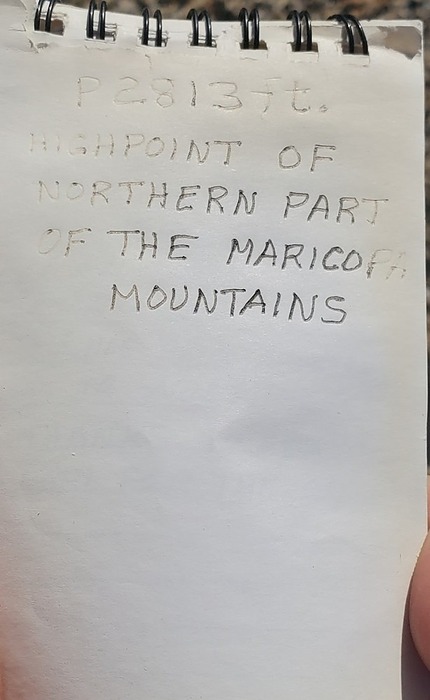 P2813ft.
HIGHPOINT OF
NORTHERN PART
OF THE MARICOPA
MOUNTAINS